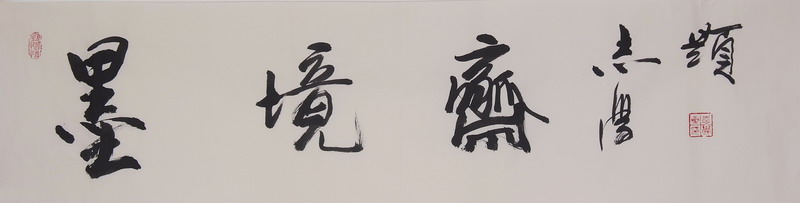 墨境齋
志
題